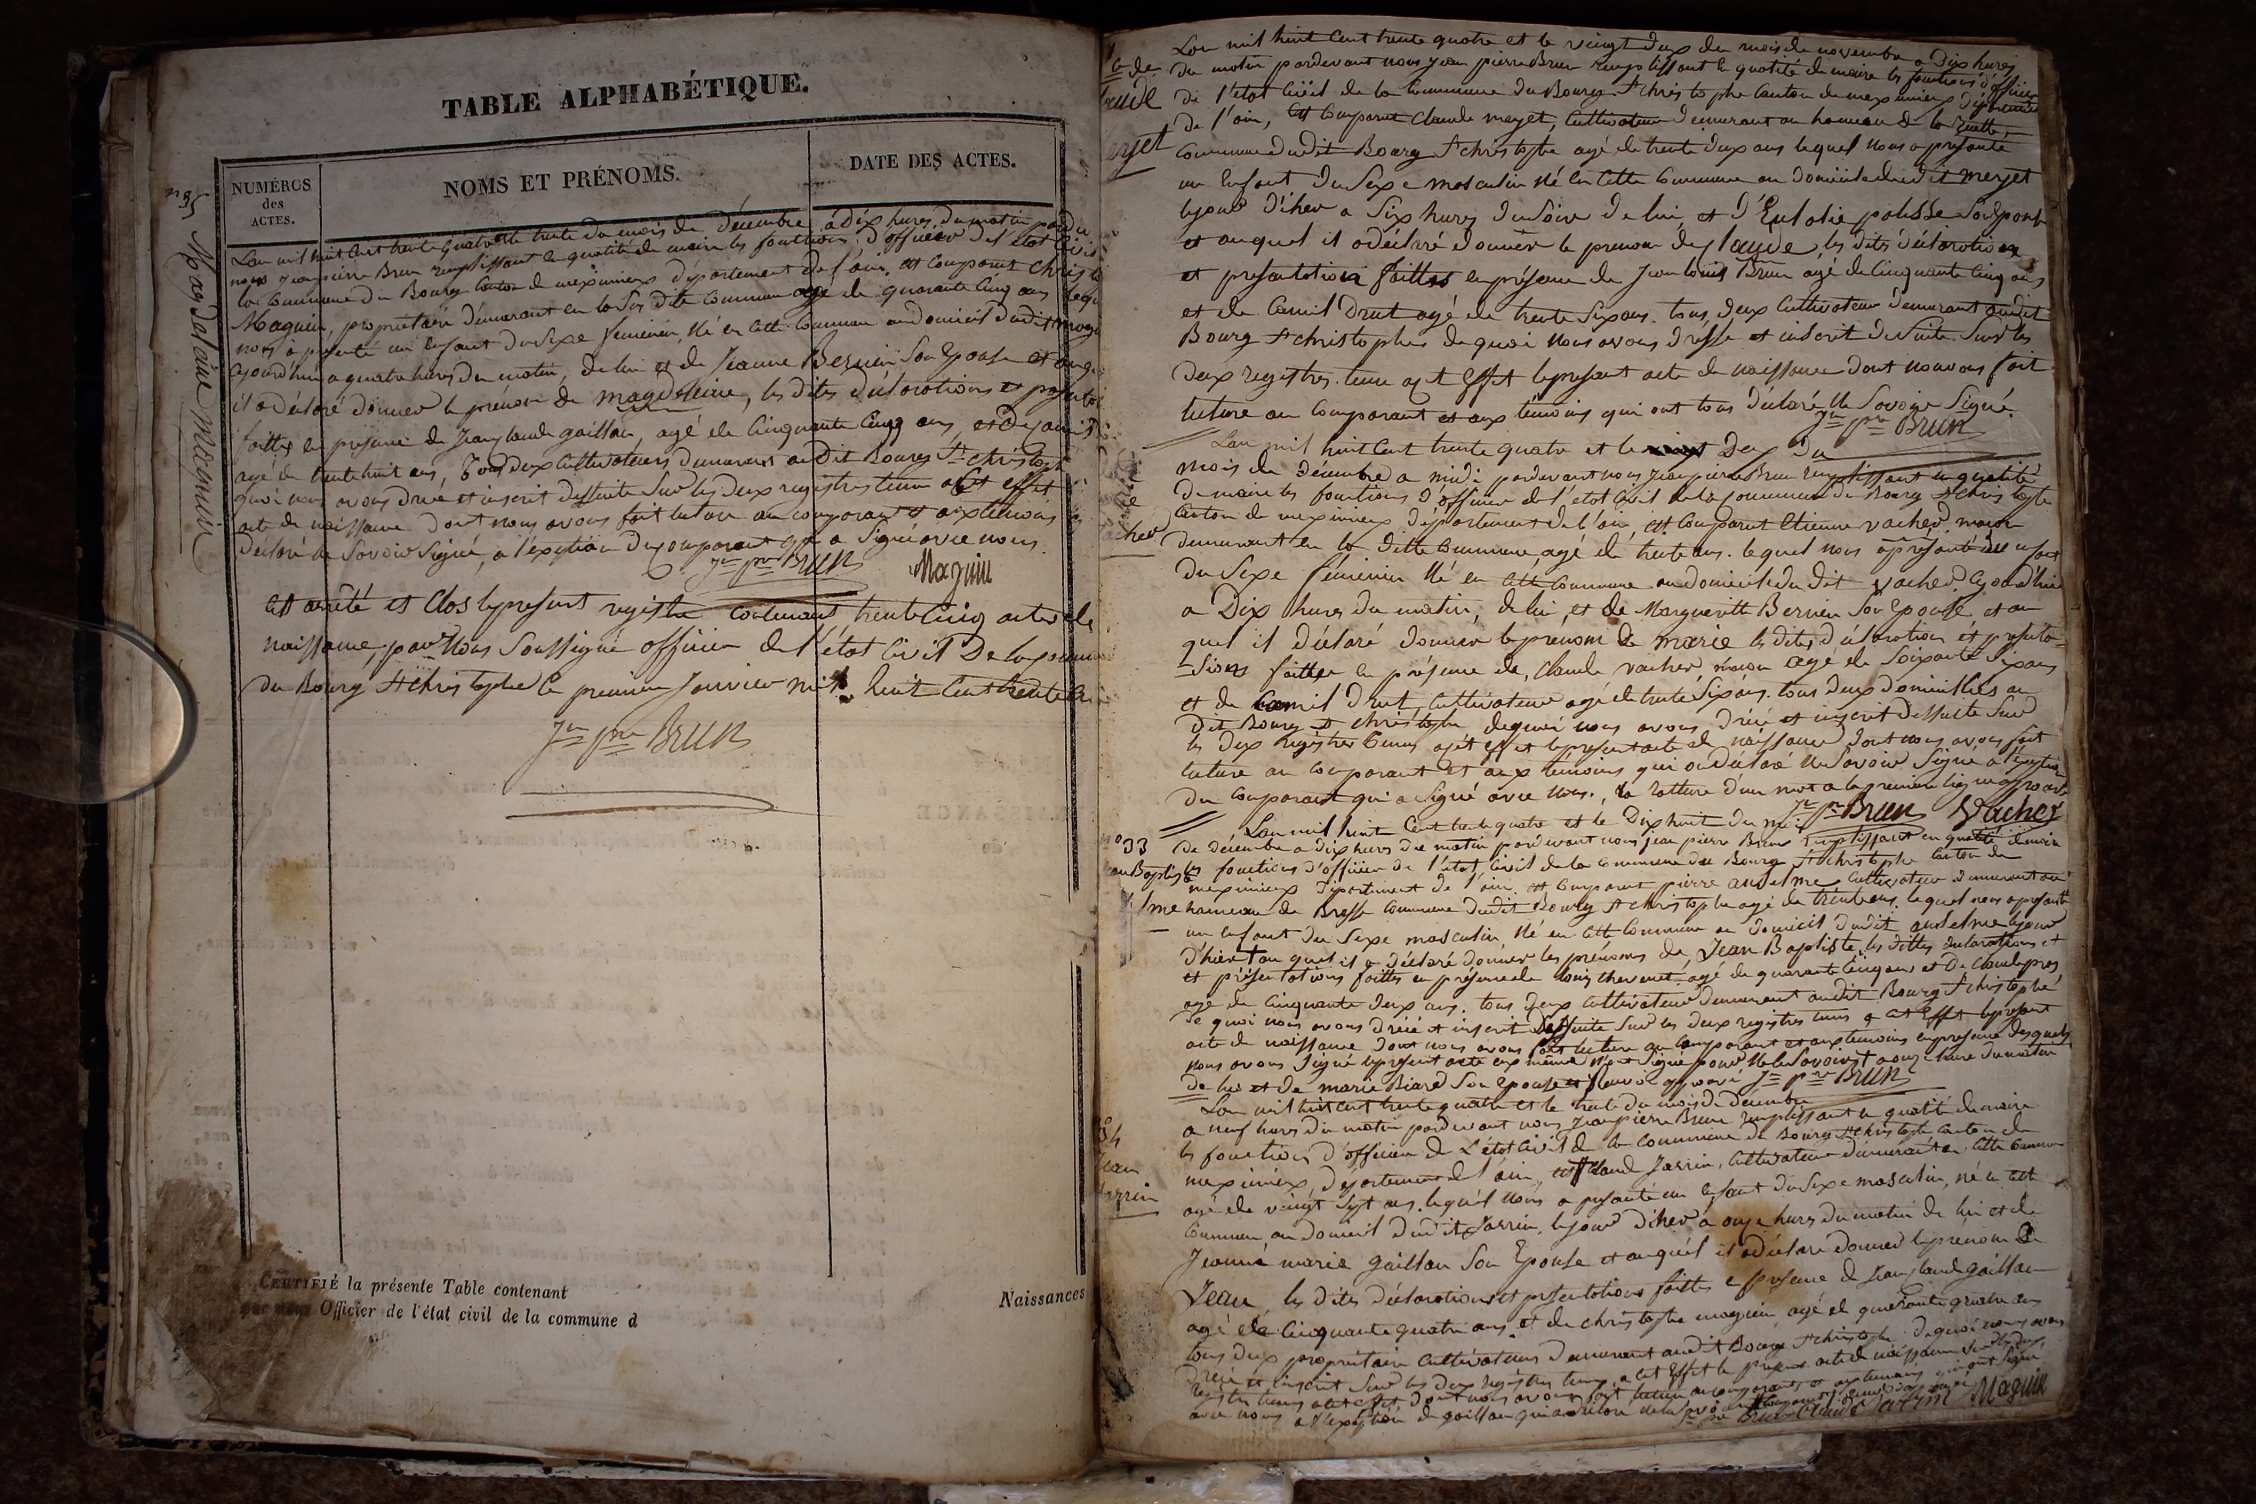 TABLE ALPHABÉTIQUE.
NUMÉROS
des
ACTES.
NOMS ET PRÉNOMS.
DATE DES ACTES.
n 35
Magdelaine Maguin
L'an mil huit cent trente quatre et le trente du mois de décembre à dix hures du matin pardev
nous jean pierre Brun remplissant la qualité de maire les fonctions d'officier de l'état civil
la commune du Bourg canton de meximieux département de l'ain, est comparut Christ
Maguin, propriétaire démurant en la dite commune agé de quarante cinq ans lequ
nous a présenté un enfant du sexe feminin, né en cette commune au domicil dudit magu
ajourd'hui a quatre hures du matin, de lui et de Jeanne Bernin son épouse et auqu
il a déclaré donner le prenom de magdeleine, les dites déclarations et présentat
faittes en présence de Jean claude gaillan, agé de cinquante cinq ans, et de
agé de trente huit ans, tous deux cultivateurs demurans audit Bourg St christoph
quoi nous avons drécé et inscrit dessuite sur les deux registres tenu a cet effet
acte de naissance dont nous avons fait lecture au comparant et aux témoins
déclaré ne savoir signé, a l'exeption du comparant qui a signé avec nous.
Jn pre Brun Maguin
Est arrêté et clos le present registre contenant trente cinq actes de
naissance, par nous soussigné officier de l'état civil de la commun
du Bourg St christophe le premier janvier mil huit cent trente
Jn pre Brun
CERTIFIÉ la présente Table contenant
Naissances
par nous Officier de l'état civil de la commune d
L'an mil huit cent trente quatre et le vingt deux du mois de novembre a dix hures
du matin pardevant nous jean pierre Brun remplissant la qualité de maire les fonctions d'officier
de l'etat civil de la commune du Bourg St christophe canton de meximieux département
de l'ain, est comparut claude meyet, cultivateur demurant au hameau de la
commune dudit Bourg St christophe agé de trente deux ans lequel nous a présenté
un enfant du sexe masculin né en cette commune au domicile dudit meyet
le jour d'iher a six hures du soire de lui et d'Eulalie polisse son épouse
et auquel il a déclaré donner le prenom de claude, les dites déclarations
et presentation faittes en présence de Jean louis Brun agé de cinquante cinq ans
et de camil Drut agé de trente six ans. tous deux cultivateur demurant audit
Bourg St christophe de quoi nous avons dressé et inscrit de suite sur les
deux registres tenu a cet effet le present acte de naissance dont nous avons fait
lecture au comparant et aux témoins qui ont tous déclaré ne savoir signé.
Jn pre Brun
L'an mil huit cent trente quatre et le deux du
mois de décembre a midi pardevant nous jean pierre Brun remplissant la qualité
de maire les fonctions d'officier de l'etat civil de la commune du Bourg St christophe
canton de meximieux département de l'ain, est comparut Etienne vacher maçon
demurant en la ditte commune agé de trente ans. lequel nous a présenté un enfant
du sexe féminin né en cette commune au domicile du dit vacher ajourd'hui
a dix hures du matin, de lui, et de Marguerite Bernin son épouse, et au
quel il déclaré donner le prenom de marie les dites déclaration et présenta
-tions faittes en présence de, claude vacher maçon agé de soixante six ans
et de camil Drut, cultivateur agé de trente six ans. tous deux domiciliés au
dit Bourg St christophe de quoi nous avons drécé et inscrit dessuite sur
les deux registres tenus a cet effet le present acte de naissance dont nous avons fait
lecture au comparant et aux témoins qui ont déclaré ne savoir signé a l'exeption
du comparant qui a signé avec nous., la rature d'un mot a la première ligne approuvé
Jn pre Brun Vacher
no 33
L'an mil huit cent trente quatre et le dix huit du mois
de décembre a dix hures du matin pardevant nous jean pierre Brun remplissant en qualité de maire
les fonctions d'officier de l'etat civil de la commune du Bourg St christophe canton de
meximieux département de l'ain. est comparut pierre anselme cultivateur demurant au
hameau de Bresse commune dudit Bourg St christophe agé de trente ans. lequel nous a présenté
un enfant du sexe masculin né en cette commune au domicil dudit anselme le jour
d'hier + au quel il a déclaré donner les prénoms de Jean Baptiste, les dittes declarations et
et présentations faittes en présence de louis thevenet agé de quarante cinq ans et de claude pres
agé de cinquante deux ans. tous deux cultivateur demurant audit Bourg St christophe
de quoi nous avons drécé et inscrit dessuite sur les deux registres tenus a cet effet le présent
acte de naissance dont nous avons fait lecture au comparant et aux temoins en presence desquels
nous avons signé le present acte eux même n'ont signé pour ne le savoir + a onze hure du matin
de lui et de marie Biard son épouse et renvoi approuvé Jn pre Brun
L'an mil huit cent trente quatre et le trente du mois de décembre
a neuf hures du matin pardevant nous jean pierre Brun remplissant la qualité de maire
les fonctions d'officier de l'état civil de la commune du Bourg St christophe canton de
meximieux, département de l'ain, est claude Jarrin, cultivateur demurant en cette commune
agé de vingt sept ans, lequel nous a présenté un enfant du sexe masculin, né en cette
commune, au domicil dudit Jarrin, le jour d'iher a onze hures du matin de lui et de
Jeanne marie gaillan son épouse et auquel il a déclaré donner le prénom de
Jean, les dites déclarations et présentations faittes en présence de Jean claude gaillan
agé de cinquante quatre ans, et de christophe maguin, agé de quarante quatre ans
tous deux propriétaire cultivateurs demurant audit Bourg St christophe de quoi nous avons
drécé et inscrit sur les deux registres tenus a cet effet le present acte de naissance
registre tenus a cet effet dont nous avons fait lecture au comparant et aux temoins qui ont signé
avec nous a l'exeption de gaillan qui a déclaré ne le savoir
Jn pre Brun claude Jarrin Maguin